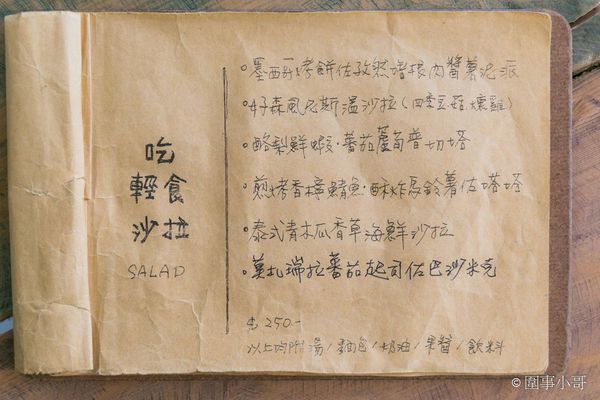 吃
輕食
沙拉
SALAD
•墨西哥烤餅佐孜然培根肉醬薯泥派
•好森風尼斯溫沙拉(四季豆菇燻雞)
•酪梨鮮蝦•蕃茄蘆筍普切塔
•煎烤香檸鯖魚•酥炸馬鈴薯佐塔塔
•泰式青木瓜香草海鮮沙拉
•莫札瑞拉蕃茄起司佐巴沙米克
$250-
以上均附湯/麵包/奶油/果醬/飲料
© 圍事小哥